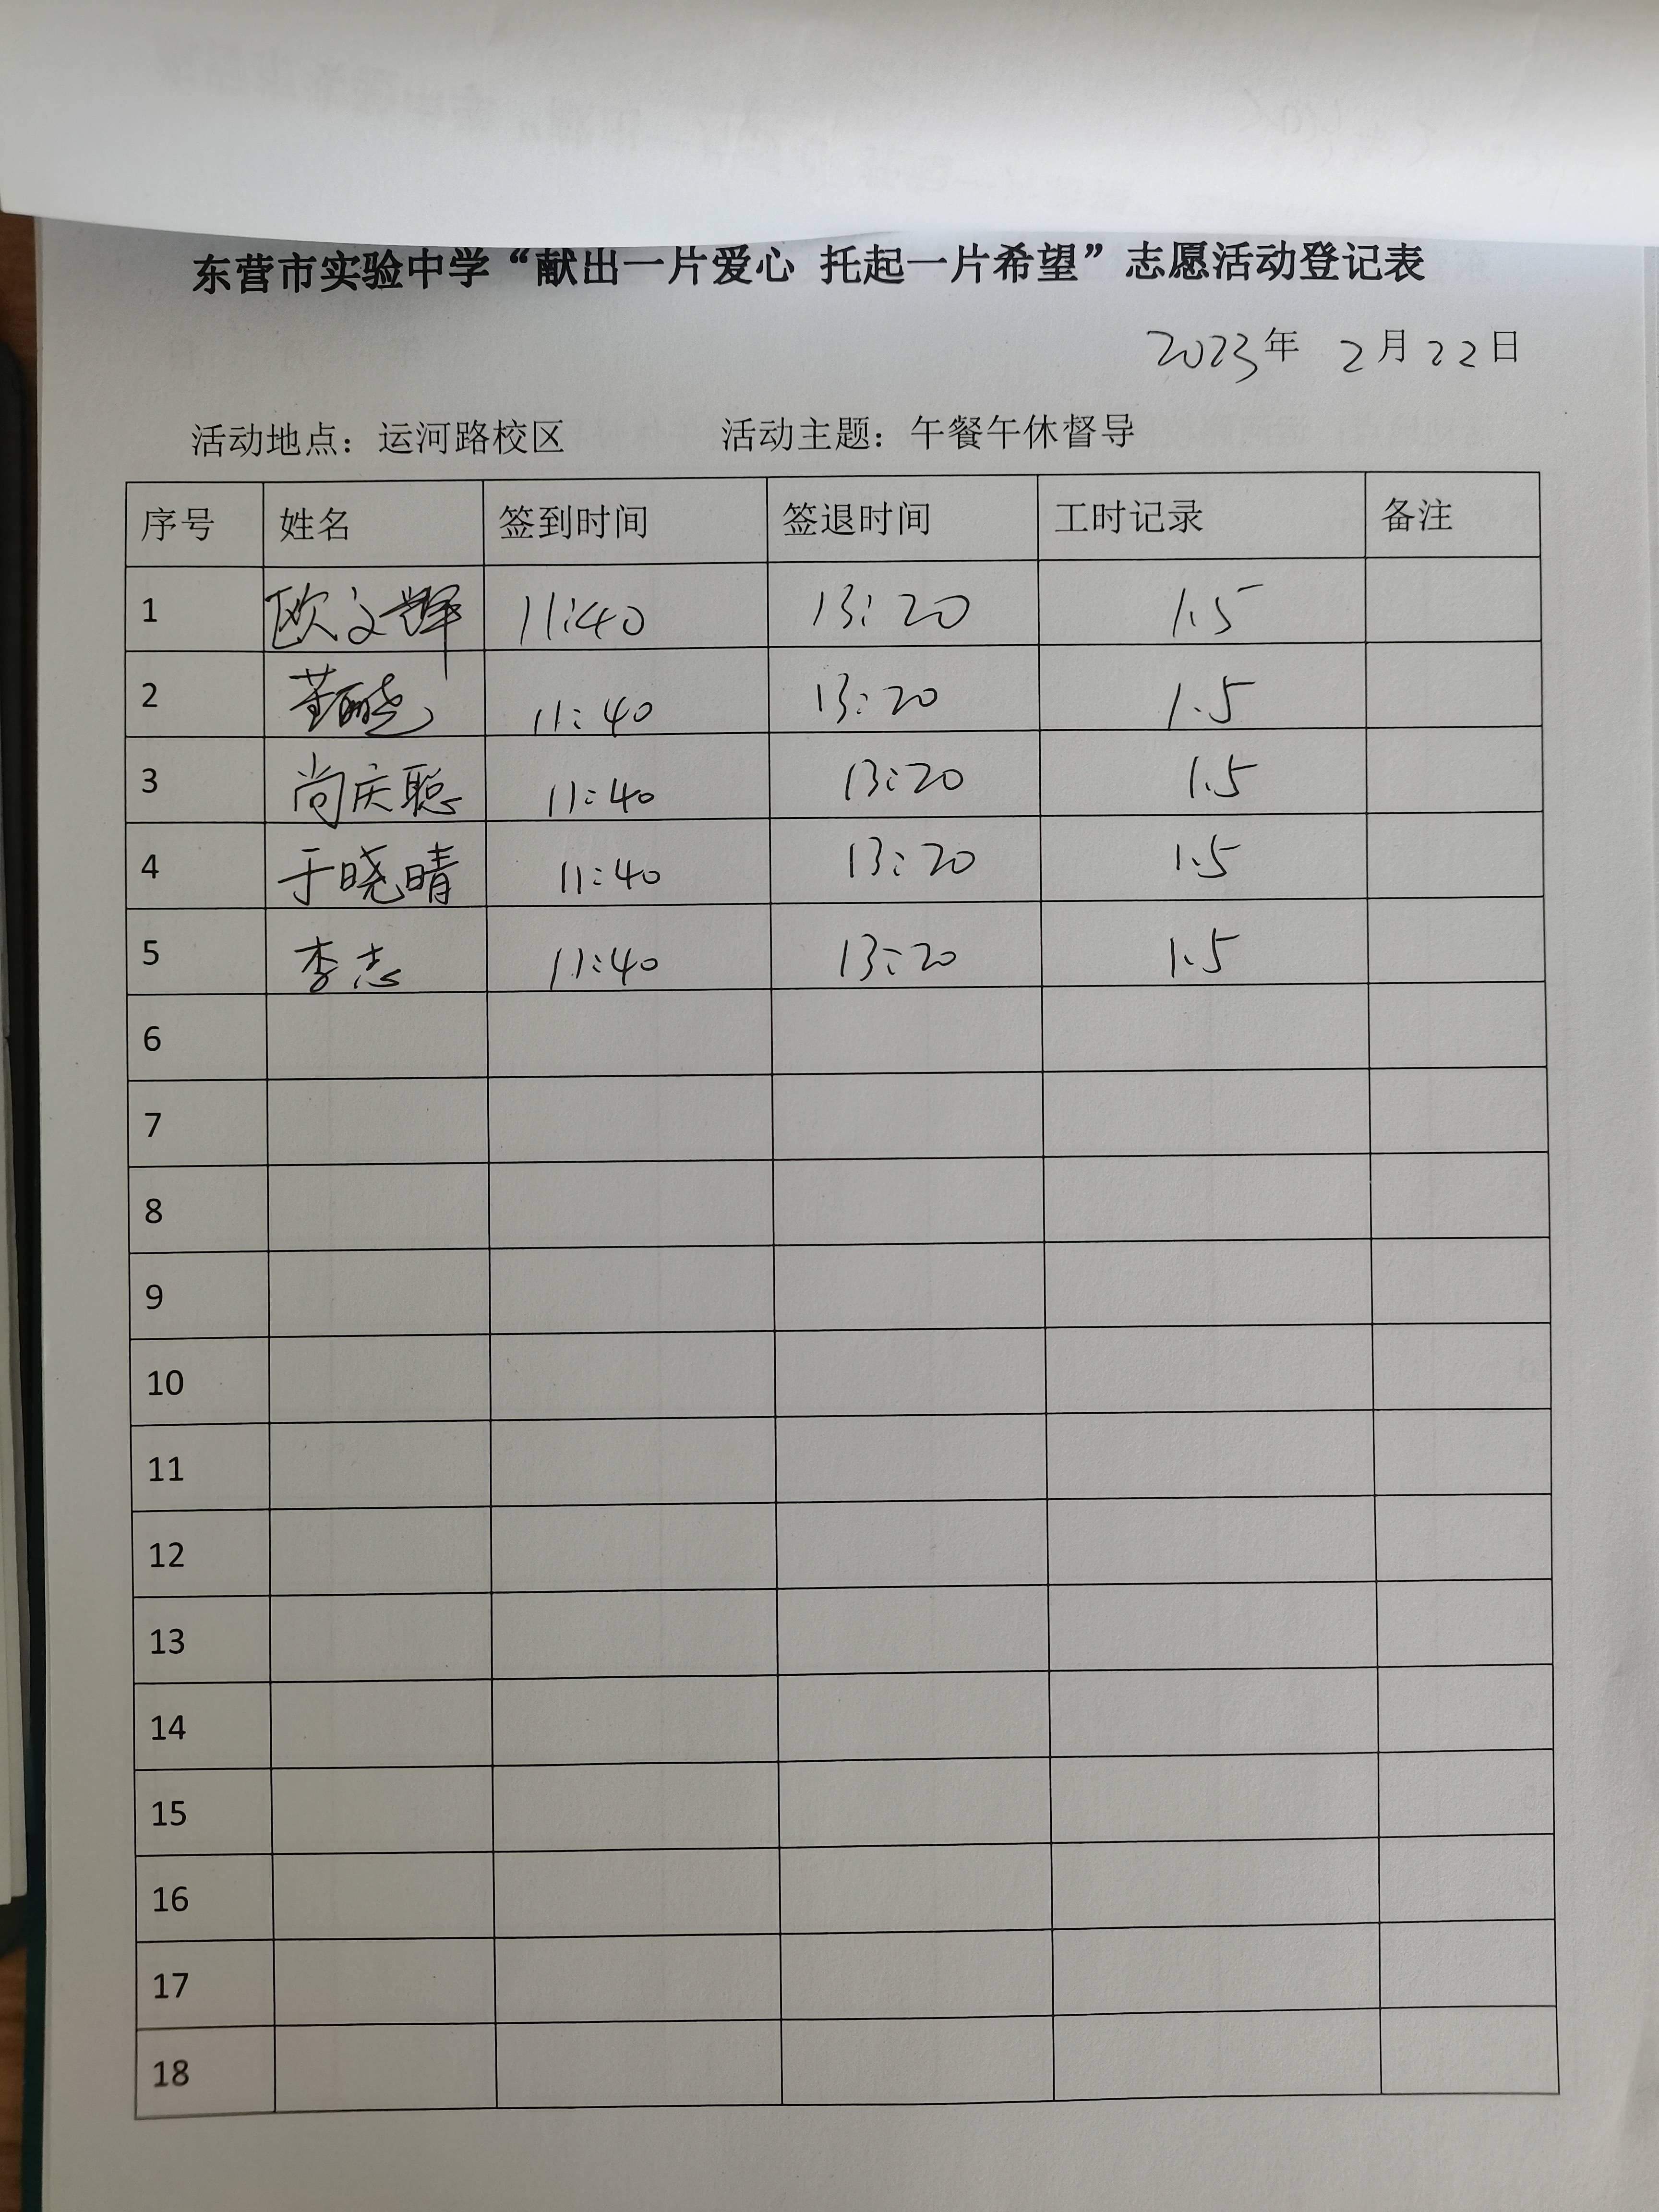 东营市实验中学“献出一片爱心 托起一片希望”志愿活动登记表
2023年 2月22日
活动地点：运河路校区 活动主题：午餐午休督导
序号 姓名 签到时间 签退时间 工时记录 备注
1 欧文辉 11:40 13:20 1.5
2 11:40 13:20 1.5
3 尚庆聪 11:40 13:20 1.5
4 于晓晴 11:40 13:20 1.5
5 李志 11:40 13:20 1.5
6
7
8
9
10
11
12
13
14
15
16
17
18